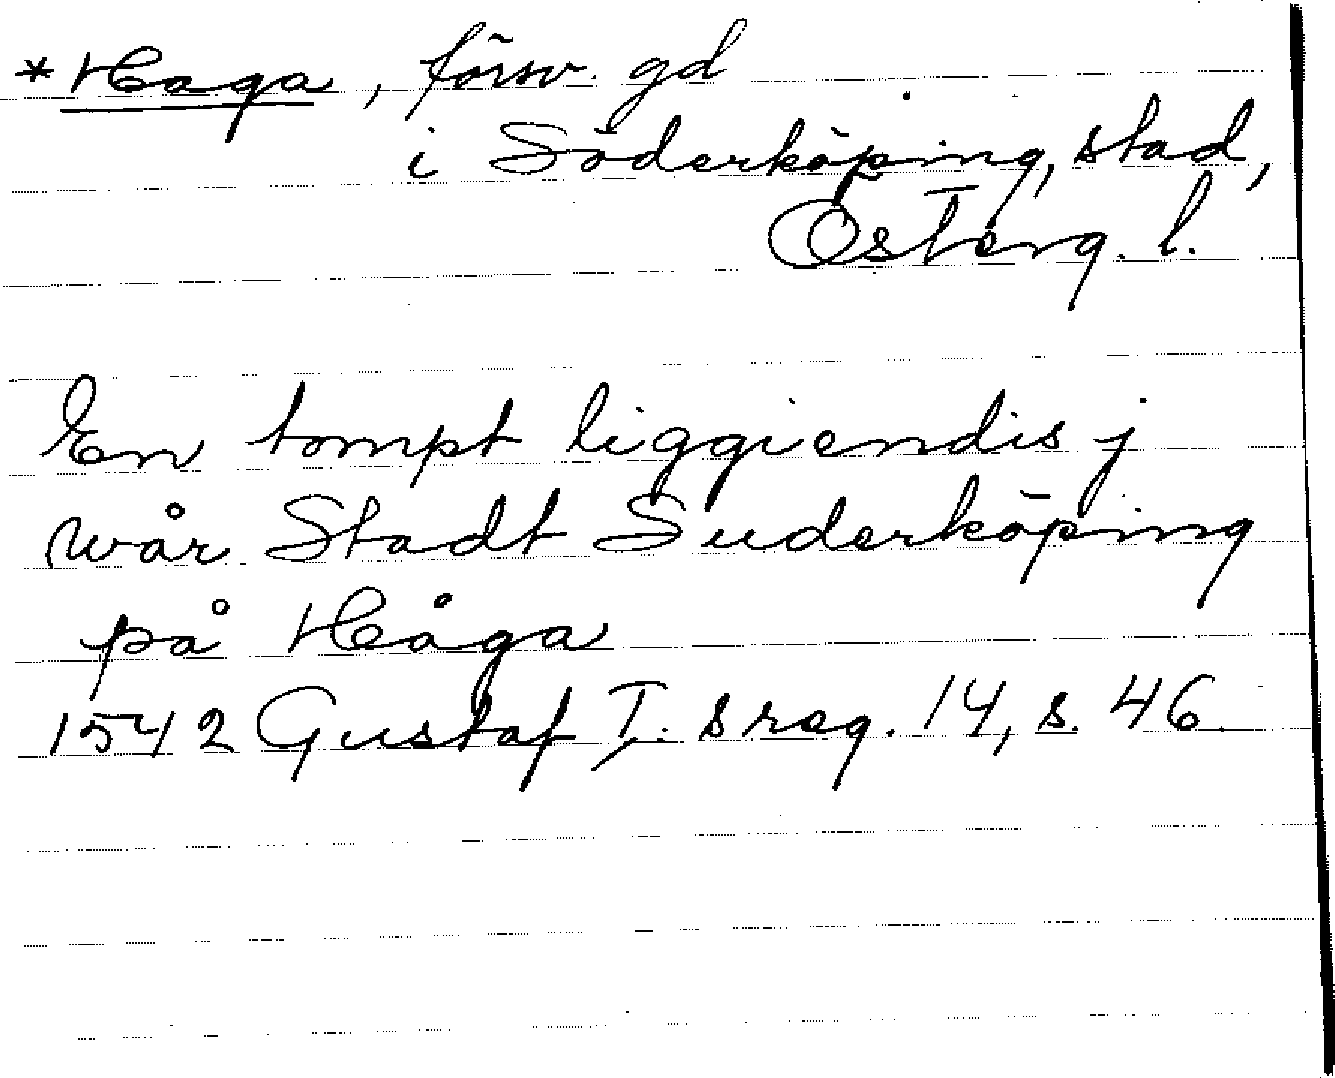 *Haga, försv. gd
i Söderköping, stad,
Österg. l.
En tompt liggiendis j
wår Stadt Suderköping
på Håga
1542 Gustaf I:s reg. 14, s. 46.